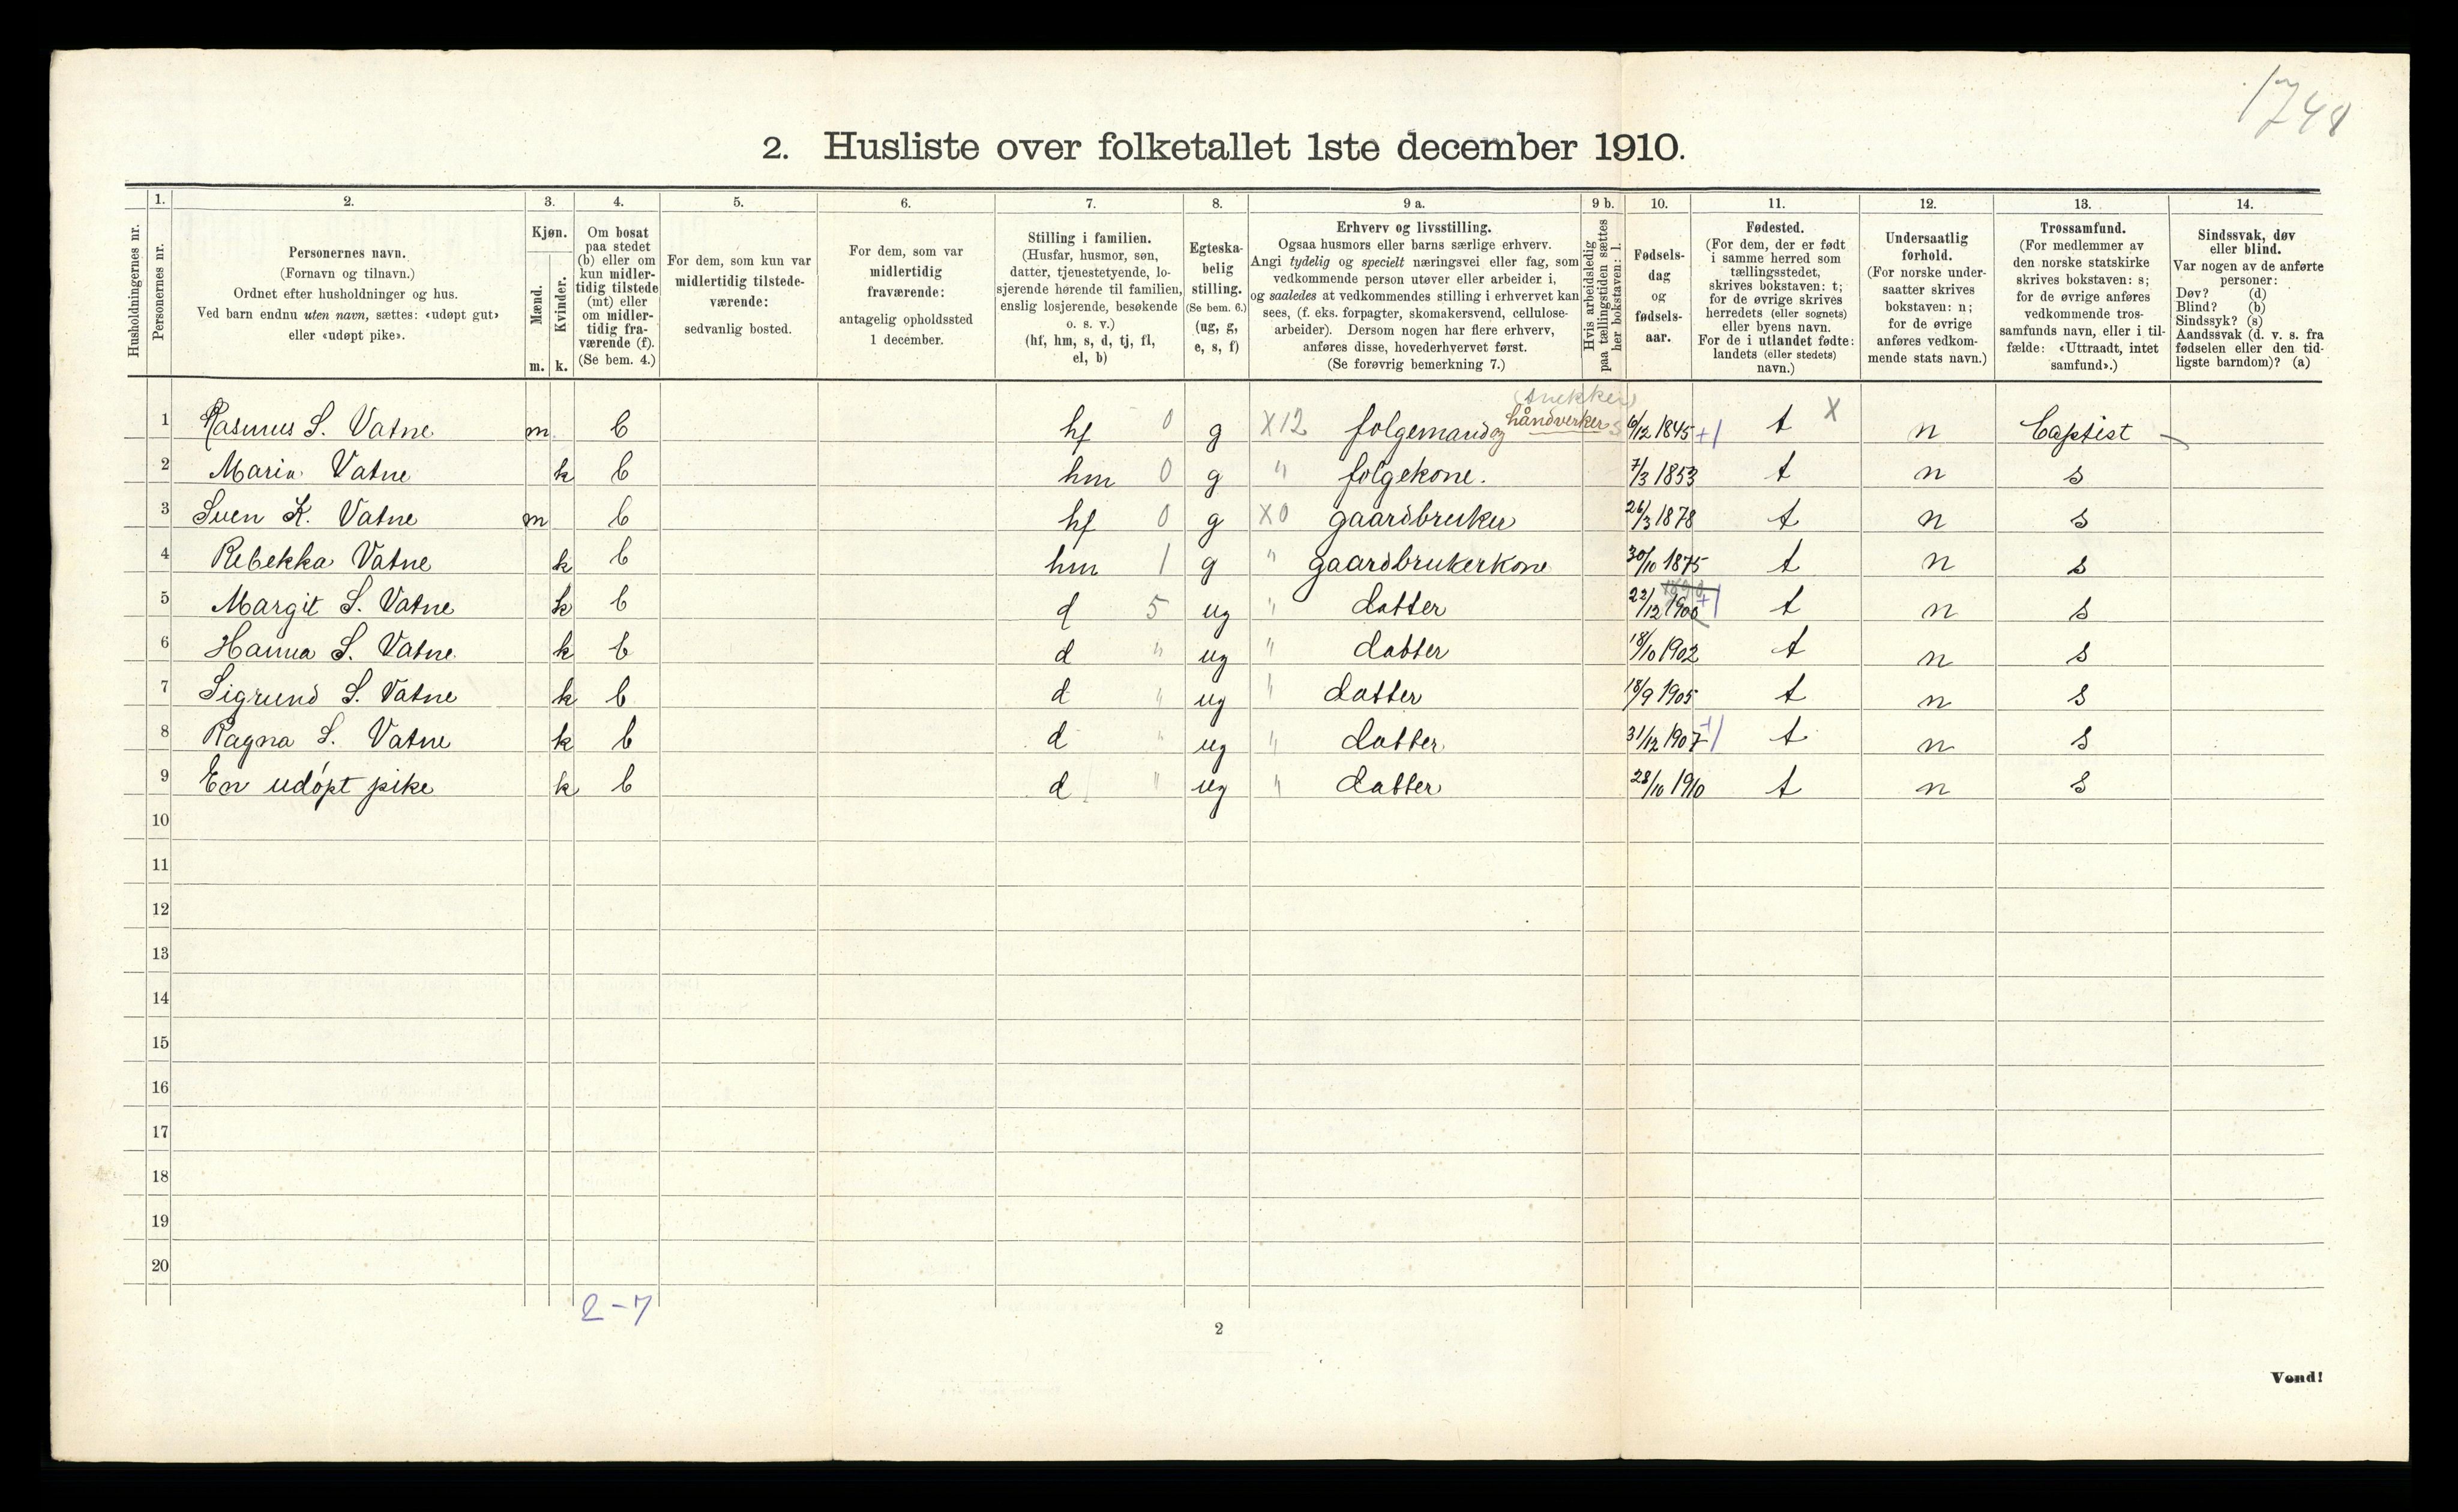 1748
2. Husliste over folketallet 1ste december 1910.
Husholdningernes nr.
1. Personernes nr.
2. Personernes navn.
(Fornavn og tilnavn.)
Ordnet efter husholdninger og hus.
Ved barn endnu uten navn, sættes: «udøpt gut»
eller «udøpt pike».
3. Kjøn.
Mænd. m.
Kvinder. k.
4. Om bosat
paa stedet
(b) eller om
kun midler-
tidig tilstede
(mt) eller
om midler-
tidig fra-
værende (f).
(Se bem. 4.)
5. For dem, som kun var
midlertidig tilstede-
værende:
sedvanlig bosted.
6. For dem, som var
midlertidig
fraværende:
antagelig opholdssted
1 december.
7. Stilling i familien.
(Husfar, husmor, søn,
datter, tjenestetyende, lo-
sjerende hørende til familien,
enslig losjerende, besøkende
o. s. v.)
(hf, hm, s, d, tj, fl,
el, b)
8. Egteska-
belig
stilling.
(Se bem. 6.)
(ug, g,
e, s, f)
9 a. Erhverv og livsstilling.
Ogsaa husmors eller barns særlige erhverv.
Angi tydelig og specielt næringsvei eller fag, som
vedkommende person utøver eller arbeider i,
og saaledes at vedkommendes stilling i erhvervet kan
sees, (f. eks. forpagter, skomakersvend, cellulose-
arbeider). Dersom nogen har flere erhverv,
anføres disse, hovederhvervet først.
(Se forøvrig bemerkning 7.)
9 b. Hvis arbeidsledig
paa tællingstiden sættes
her bokstaven: l.
10. Fødsels-
dag
og
fødsels-
aar.
11. Fødested.
(For dem, der er født
i samme herred som
tællingsstedet,
skrives bokstaven: t;
for de øvrige skrives
herredets (eller sognets)
eller byens navn.
For de i utlandet fødte:
landets (eller stedets)
navn.)
12. Undersaatlig
forhold.
(For norske under-
saatter skrives
bokstaven: n;
for de øvrige
anføres vedkom-
mende stats navn.)
13. Trossamfund.
(For medlemmer av
den norske statskirke
skrives bokstaven: s;
for de øvrige anføres
vedkommende tros-
samfunds navn, eller i til-
fælde: «Uttraadt, intet
samfund».)
14. Sindssvak, døv
eller blind.
Var nogen av de anførte
personer:
Døv? (d)
Blind? (b)
Sindssyk? (s)
Aandssvak (d. v. s. fra
fødselen eller den tid-
ligste barndom)? (a)
(snekker)
1 Rasmus S. Vatne m b hf 0 g X12 folgemand og håndverker s 6/12 1845 +1 t X n Baptist
2 Maria Vatne k b hm 0 g " folgekone. 7/3 1853 t n s
3 Sven K. Vatne m b hf 0 g X0 gaardbruker 26/3 1878 t n s
4 Rebekka Vatne k b hm 1 g " gaardbrukerkone 30/10 1875 t n s
5 Margit S. Vatne k b d 5 ug " datter 22/12 1900 +1 t n s
6 Hanna S. Vatne k b d " ug " datter 18/10 1902 t n s
7 Sigrund S. Vatne k b d " ug " datter 18/9 1905 t n s
8 Ragna S. Vatne k b d " ug " datter 31/12 1907 +1 t n s
9 En udópt pike k b d " ug " datter 28/10 1910 t n s
10
11
12
13
14
15
16
17
18
19
20
2-7
2
Vend!